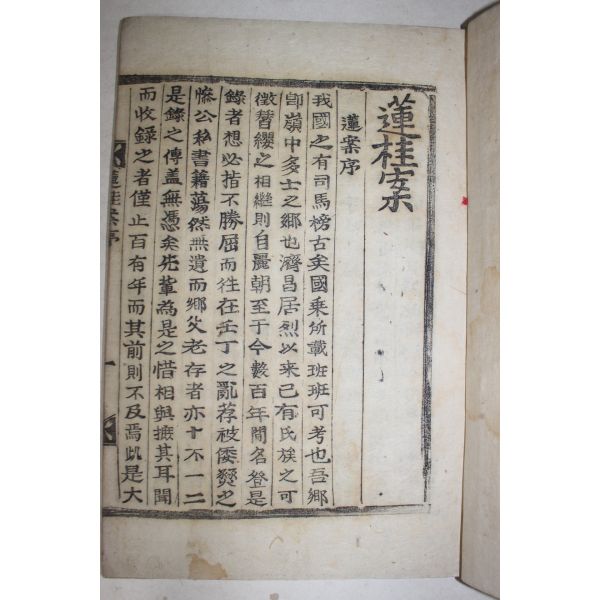 蓮桂案
蓮案序
我國之有司馬榜古矣國乗所載班班可考也吾鄉
即嶺中多士之鄉也濟昌居烈以来已有氏族之可
徴簪纓之相継則自麗朝至于今數百年間名登是
錄者想必指不勝屈而徃在壬丁之亂荐被倭燹之
慘公私書籍蕩然無遺而鄉父老存者亦十不一二
是錄之傳盖無憑矣先軰為是之惜相與摭其耳聞
而收錄之者僅止百有年而其前則不及焉此是大
蓮桂案序
一